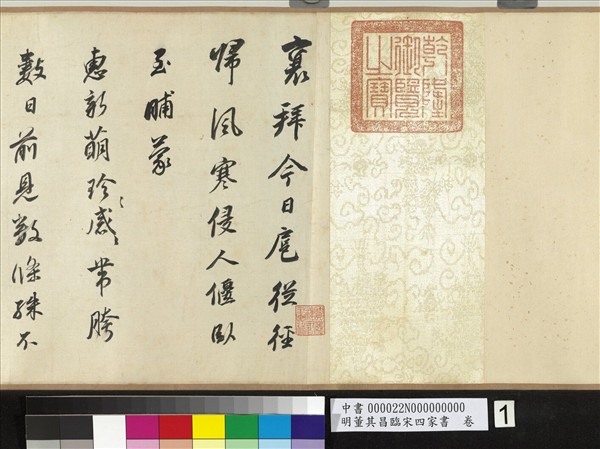 乾隆御覽之寶
襄拜今日扈從徑
歸風寒侵人偃臥
至晡蒙
惠新萌珍感〻帶胯
數日前見數條殊不
中書 000022N000000000
明董其昌臨宋四家書 卷
1